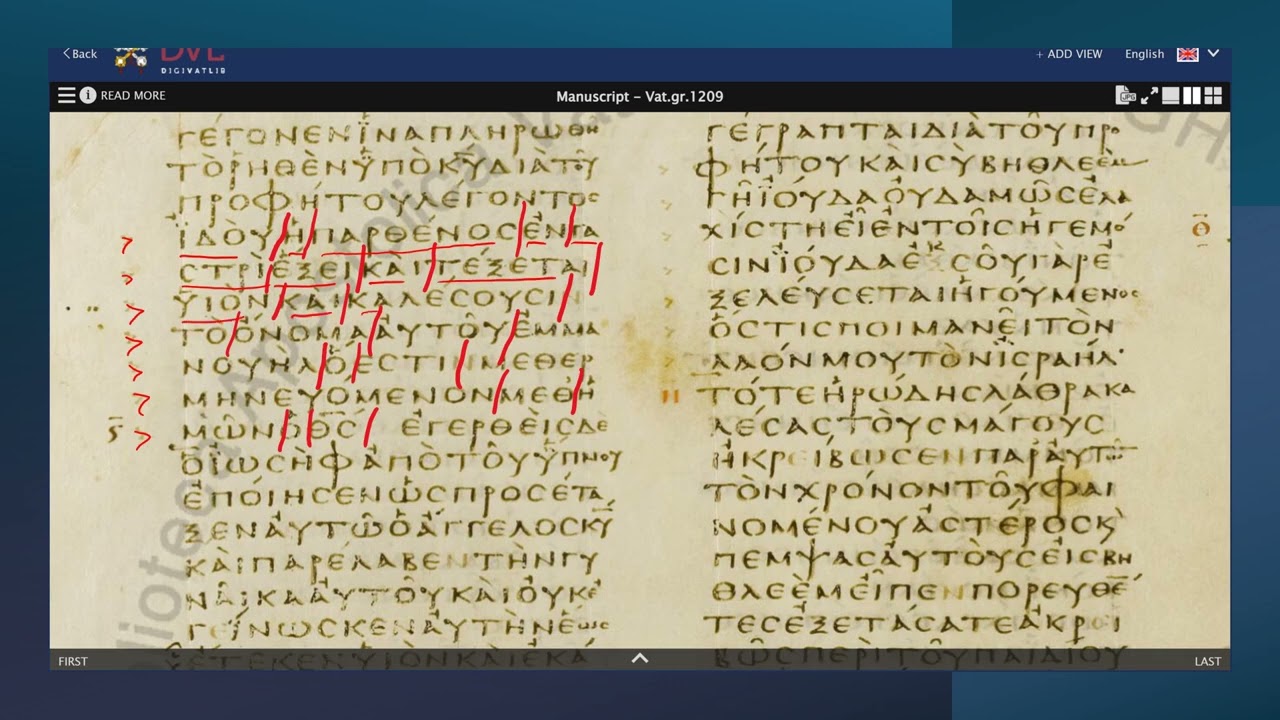 Back
DVL
DIGIVATLIB
+ ADD VIEW
English
READ MORE
Manuscript – Vat.gr.1209
JPG
ΓΕΓΟΝΕΝΪΝΑΠΛΗΡΩΘΗ
ΤΟΡΗΘΕΝΫΠΟΚΥΔΙΑΤΟΥ
ΠΡΟΦΗΤΟΥΛΕΓΟΝΤΟΣ
ΪΔΟΥΗΠΑΡΘΕΝΟΣΕΝΓΑ
ΣΤΡΙΕΞΕΙΚΑΙΤΕΞΕΤΑΙ
ΥΙΟΝΚΑΙΚΑΛΕΣΟΥΣΙΝ
ΤΟΟΝΟΜΑΑΥΤΟΥΕΜΜΑ
ΝΟΥΗΛΟΕΣΤΙΝΜΕΘΕΡ
ΜΗΝΕΥΟΜΕΝΟΝΜΕΘΗ
ΜΩΝΟΘΣ ΕΓΕΡΘΕΙΣΔΕ
ΟΪΩΣΗΦΑΠΟΤΟΥΫΠΝΟΥ
ΕΠΟΙΗΣΕΝΩΣΠΡΟΣΕΤΑ
ΞΕΝΑΥΤΩΟΑΓΓΕΛΟΣΚΥ
ΚΑΙΠΑΡΕΛΑΒΕΝΤΗΝΓΥ
ΝΑΙΚΑΑΥΤΟΥΚΑΙΟΥΚΕ
ΓΕΙΝΩΣΚΕΝΑΥΤΗΝΕΩΣ
ΕΤΕΚΕΝΥΙΟΝΚΑΙΕΚΑ
ΓΕΓΡΑΠΤΑΙΔΙΑΤΟΥΠΡΟ
ΦΗΤΟΥΚΑΙΣΥΒΗΘΛΕΕΜ
ΓΗΪΟΥΔΑΟΥΔΑΜΩΣΕΛΑ
ΧΙΣΤΗΕΙΕΝΤΟΙΣΗΓΕΜΟ
ΣΙΝΪΟΥΔΑΕΚΣΟΥΓΑΡΕ
ΞΕΛΕΥΣΕΤΑΙΗΓΟΥΜΕΝΟΣ
ΟΣΤΙΣΠΟΙΜΑΝΕΙΤΟΝ
ΛΑΟΝΜΟΥΤΟΝΙΣΡΑΗΛ·
ΤΟΤΕΗΡΩΔΗΣΛΑΘΡΑΚΑ
ΛΕΣΑΣΤΟΥΣΜΑΓΟΥΣ
ΗΚΡΕΙΒΩΣΕΝΠΑΡΑΥΤΩ
ΤΟΝΧΡΟΝΟΝΤΟΥΦΑΙ
ΝΟΜΕΝΟΥΑΣΤΕΡΟΣΚ
ΠΕΜΨΑΣΑΥΤΟΥΣΕΙΣΒΗ
ΘΛΕΕΜΕΙΠΕΝΠΟΡΕΥΘΕ
ΤΕΣΕΞΕΤΑΣΑΤΕΑΚΡΕΙ
ΒΩΣΠΕΡΙΤΟΥΠΑΙΔΙΟΥ
FIRST
LAST